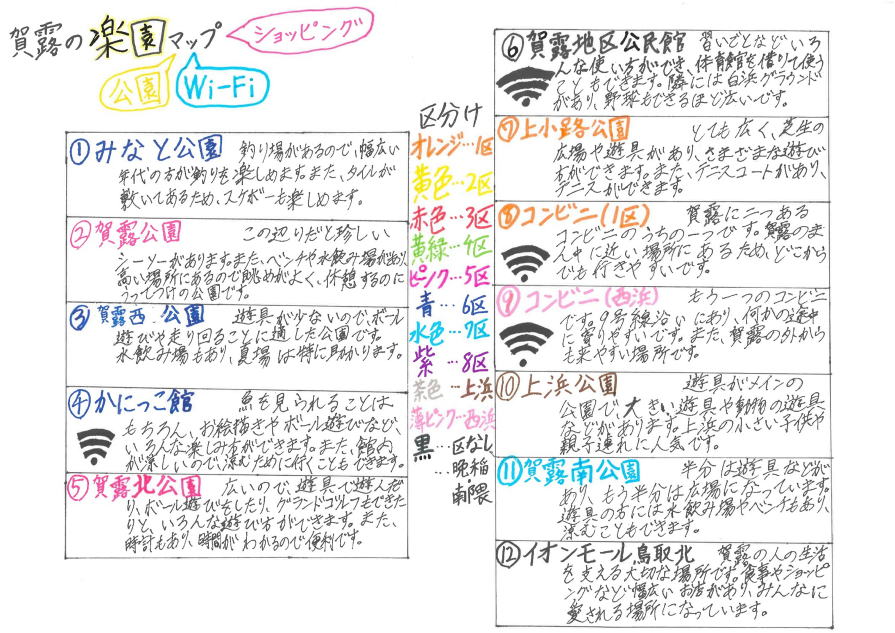 賀露の楽園マップ
ショッピング
公園
Wi-Fi
①みなと公園 釣り場があるので、幅広い
年代の方が釣りを楽しめます。また、タイルが
敷いてあるため、スケボーも楽しめます。
②賀露公園 この辺りだと珍しい
シーソーがあります。また、ベンチや水飲み場があり、
高い場所にあるので眺めがよく、休憩するのに
うってつけの公園です。
③賀露西公園 遊具が少ないので、ボール
遊びや走り回ることに適した公園です。
水飲み場もあり、夏場は特に助かります。
④かにっこ館 魚を見られることは
もちろん、お絵描きやボール遊びなど、
いろんな楽しみ方ができます。また、館内
が涼しいので、涼むために行くこともできます。
⑤賀露北公園 広いので、遊具で遊んだ
り、ボール遊びをしたり、グランドゴルフもできた
りと、いろんな遊び方ができます。また、
時計もあり、時間がわかるので便利です。
区分け
オレンジ…1区
黄色…2区
赤色…3区
黄緑…4区
ピンク…5区
青…6区
水色…7区
紫…8区
茶色…上浜
薄ピンク…西浜
黒…区なし
…晩稲
・南隈
⑥賀露地区公民館 習いごとなどいろ
んな使い方ができ、体育館を借りて使う
こともできます。隣には白浜グラウンド
があり、野球もできるほど広いです。
⑦上小路公園 とても広く、芝生の
広場や遊具があり、さまざまな遊び
方ができます。また、テニスコートがあり、
テニスができます。
⑧コンビニ(1区) 賀露に二つある
コンビニのうちの一つです。賀露のま
ん中に近い場所にあるため、どこから
でも行きやすいです。
⑨コンビニ(西浜) もう一つのコンビニ
です。9号線沿いにあり、何かの途中
に寄りやすいです。また、賀露の外から
も来やすい場所です。
⑩上浜公園 遊具がメインの
公園で、大きい遊具や動物の遊具
などがあります。上浜の小さい子供や
親子連れに人気です。
⑪賀露南公園 半分は遊具などが
あり、もう半分は広場になっています。
遊具の方には水飲み場やベンチもあり、
涼むこともできます。
⑫イオンモール鳥取北 賀露の人の生活
を支える大切な場所です。食事やショッピ
ングなど幅広いお店があり、みんなに
愛される場所になっています。